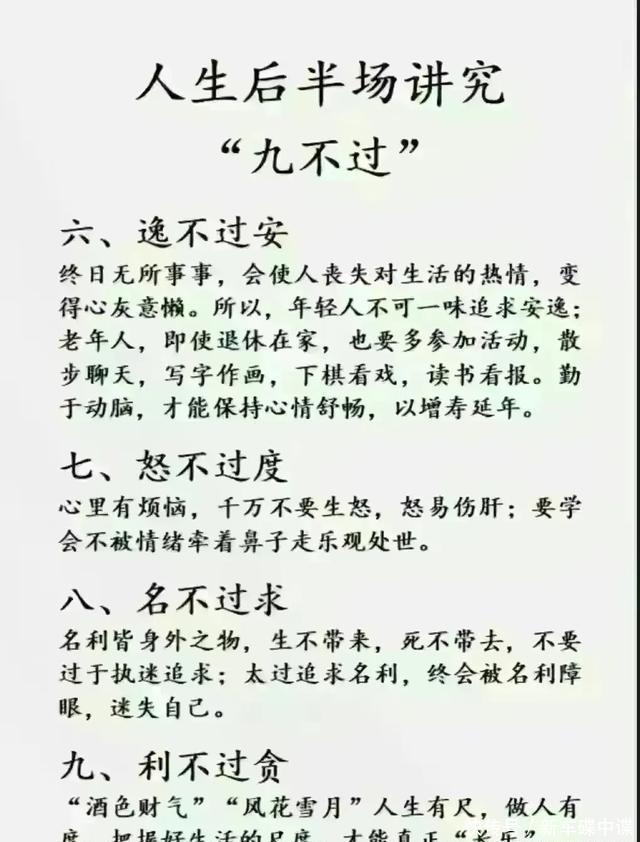 人生后半场讲究
“九不过”
六、逸不过安
终日无所事事，会使人丧失对生活的热情，变
得心灰意懒。所以，年轻人不可一味追求安逸；
老年人，即使退休在家，也要多参加活动，散
步聊天，写字作画，下棋看戏，读书看报。勤
于动脑，才能保持心情舒畅，以增寿延年。
七、怒不过度
心里有烦恼，千万不要生怒，怒易伤肝；要学
会不被情绪牵着鼻子走乐观处世。
八、名不过求
名利皆身外之物，生不带来，死不带去，不要
过于执迷追求；太过追求名利，终会被名利障
眼，迷失自己。
九、利不过贪
“酒色财气”“风花雪月”人生有尺，做人有
度，把握好生活的尺度，才能真正“长乐”